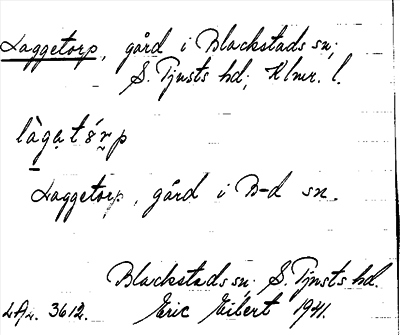 Laggetorp, gård i Blackstads sn;
S. Tjusts hd; Klmr. l.
làgatórp
Laggetorp, gård i B-d sn.
Blackstads sn; S. Tjusts hd.
Eric Eibert 1941.